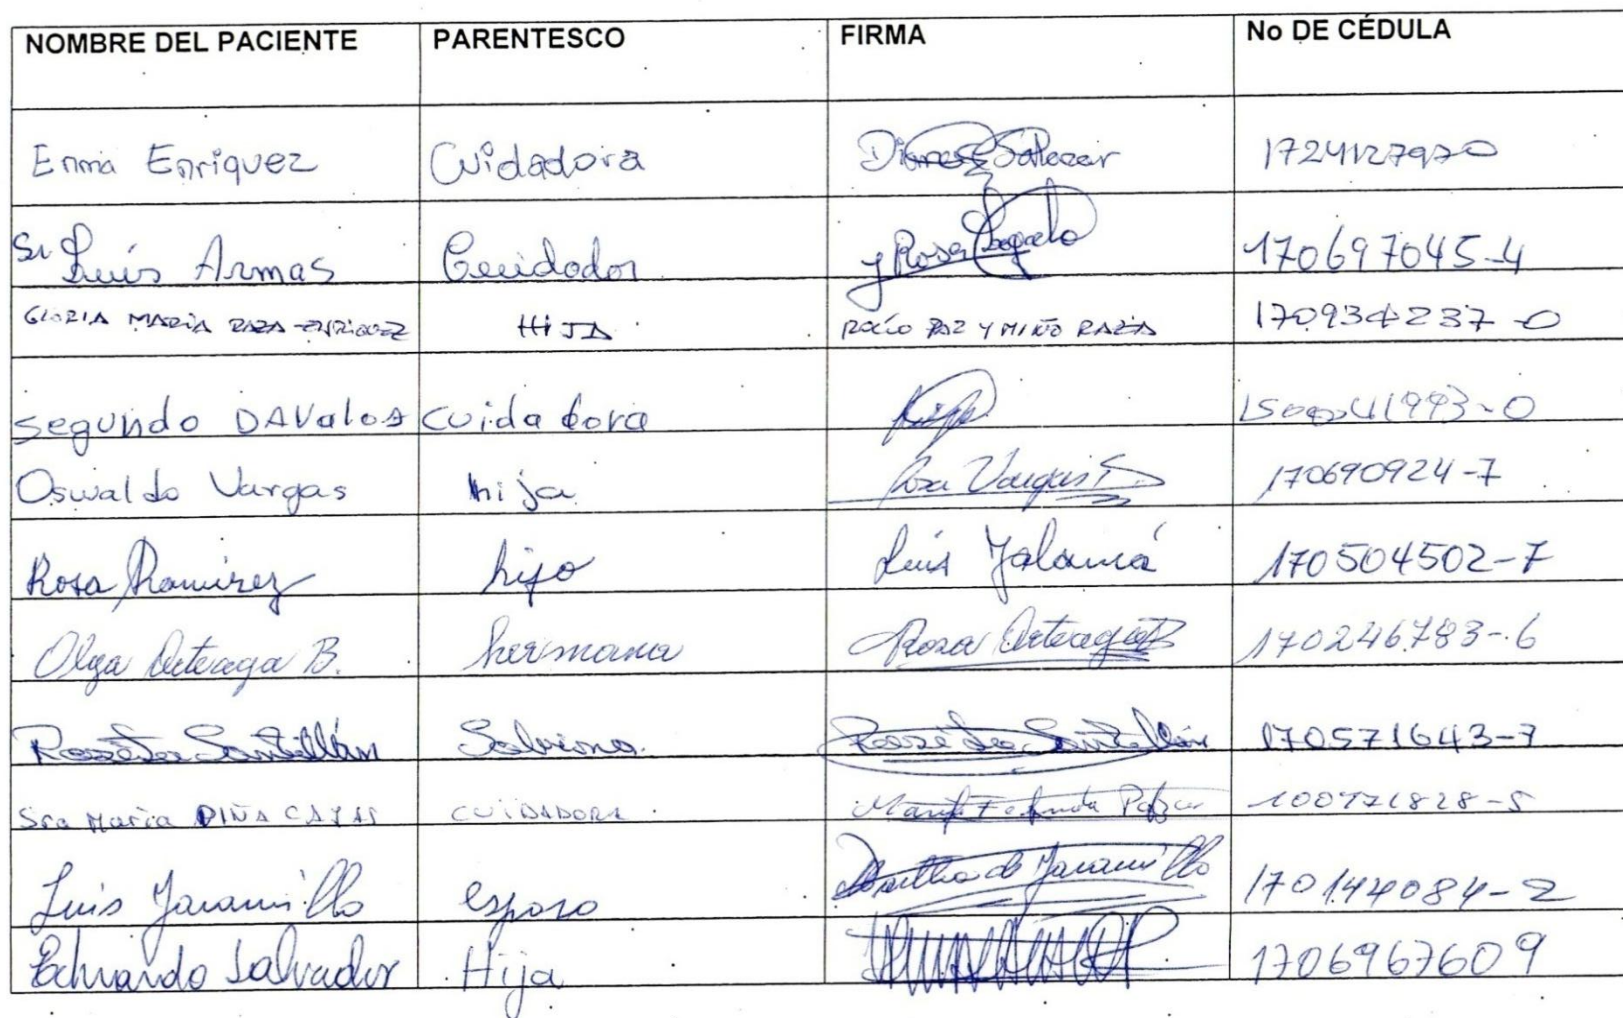 NOMBRE DEL PACIENTE PARENTESCO FIRMA No DE CÉDULA
Enma Enriquez Cuidadora Salazar 1724127970
Sr Luis Armas Cuidador Rosa 170697045-4
GLORIA MARIA HIJA ROCÍO PAZ Y MIÑO 170934237-0
Segundo DAValos cuidadora
Oswaldo Vargas hija Rosa Vargas 170690924-7
Rosa Ramirez hijo Luis 170504502-7
Olga Arteaga B. hermana Rosa Arteaga 170246783-6
Santillán Sobrina Santillán 170571643-7
Sra Maria PIÑA CUIDADORA
Luis Jaramillo esposo Martha de Jaramillo 170144084-2
Eduardo Salvador Hija 1706967609